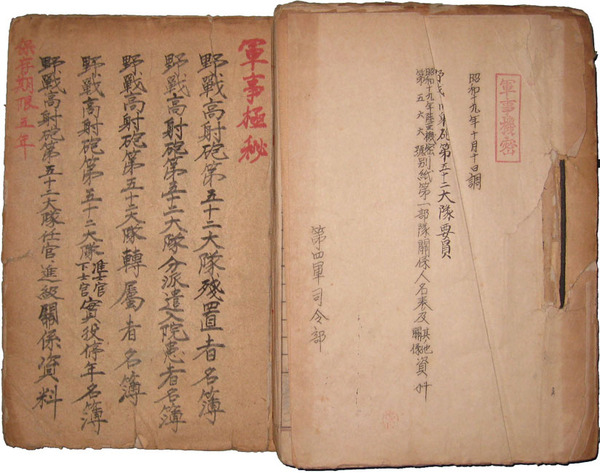 軍事機密
昭和十九年十月十日調
第五十二大隊要員
昭和十九年陸亜機密
第五六六號
別紙第一部隊關係人名表及其他關係資料
第四軍司令部
軍事極秘
野戰高射砲第五十二大隊殘置者名簿
野戰高射砲第五十二大隊分派遣入院患者名簿
野戰高射砲第五十二大隊轉屬者名簿
野戰高射砲第五十二大隊准士官下士官實役停年名簿
野戰高射砲第五十二大隊任官・進級關係資料
保存期限五年